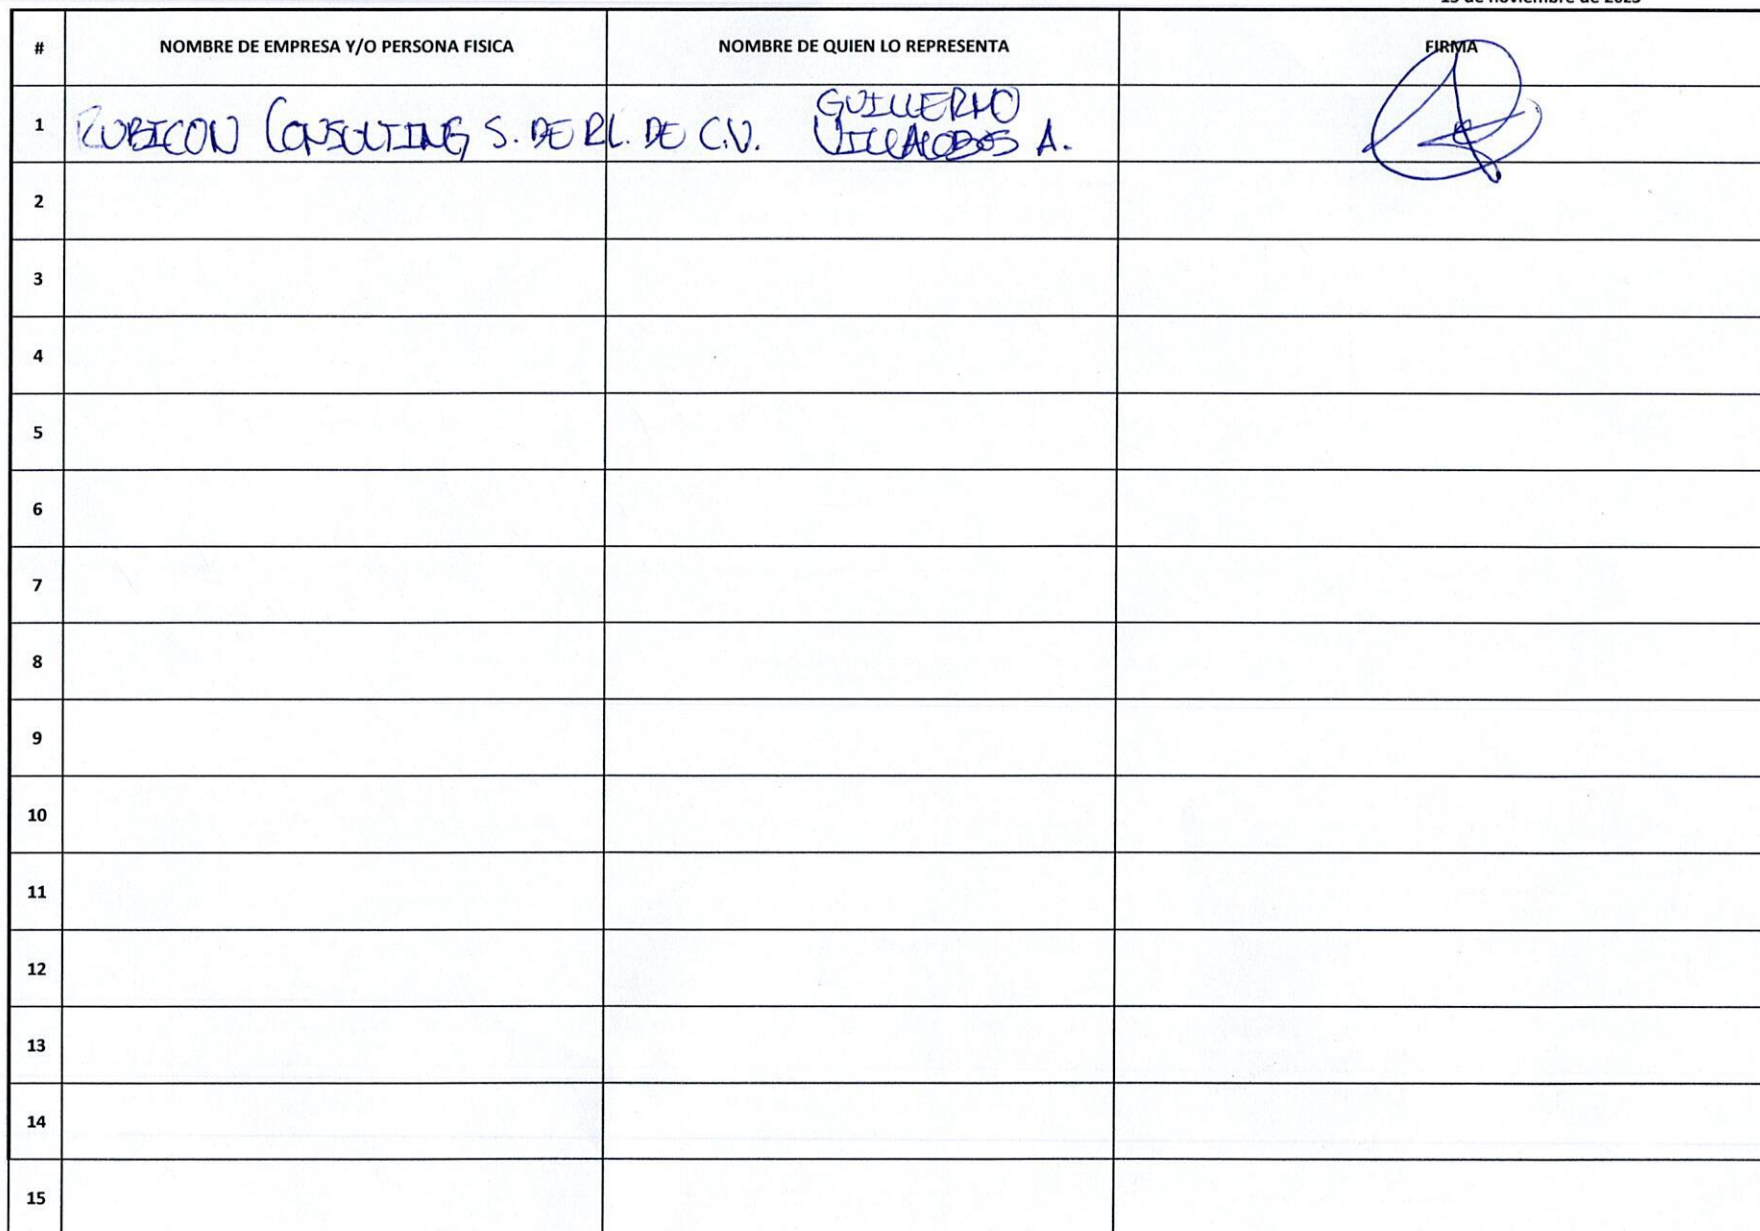 de noviembre de
# NOMBRE DE EMPRESA Y/O PERSONA FISICA NOMBRE DE QUIEN LO REPRESENTA FIRMA
1 RUBICON CONSULTING S. DE RL. DE C.V. GUILLERMO
VILLALOBOS A.
2
3
4
5
6
7
8
9
10
11
12
13
14
15